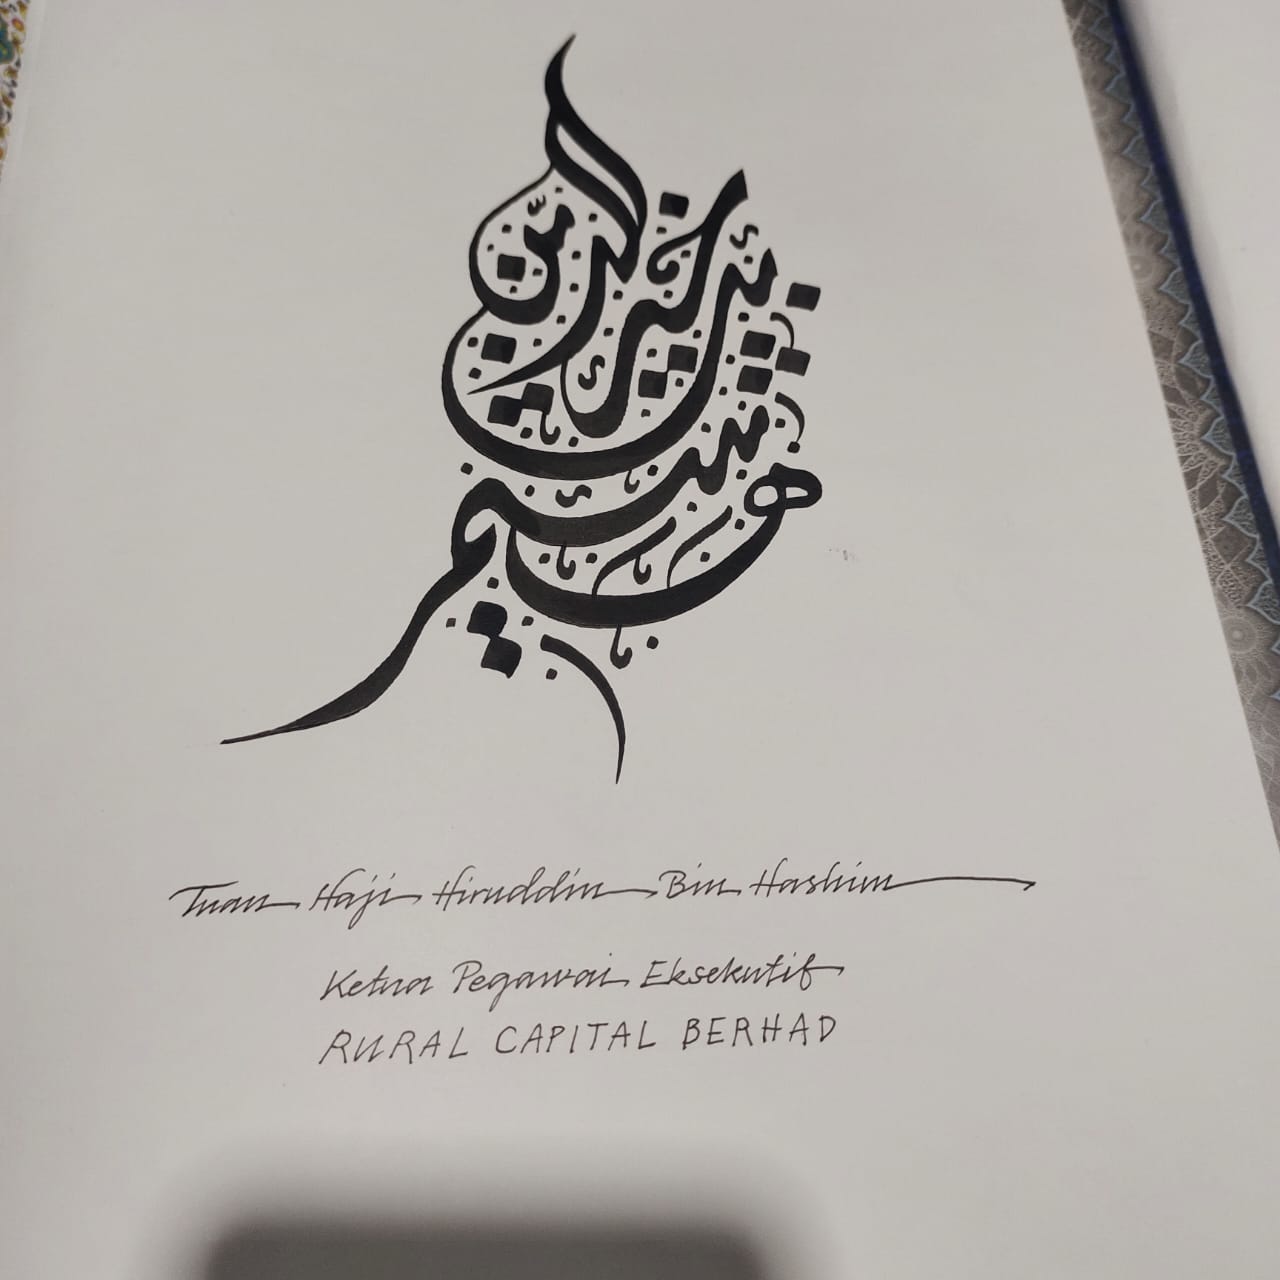 خير الدين
بن
هشيم
Tuan Haji Hiruddin Bin Hashim
Ketua Pegawai Eksekutif
RURAL CAPITAL BERHAD